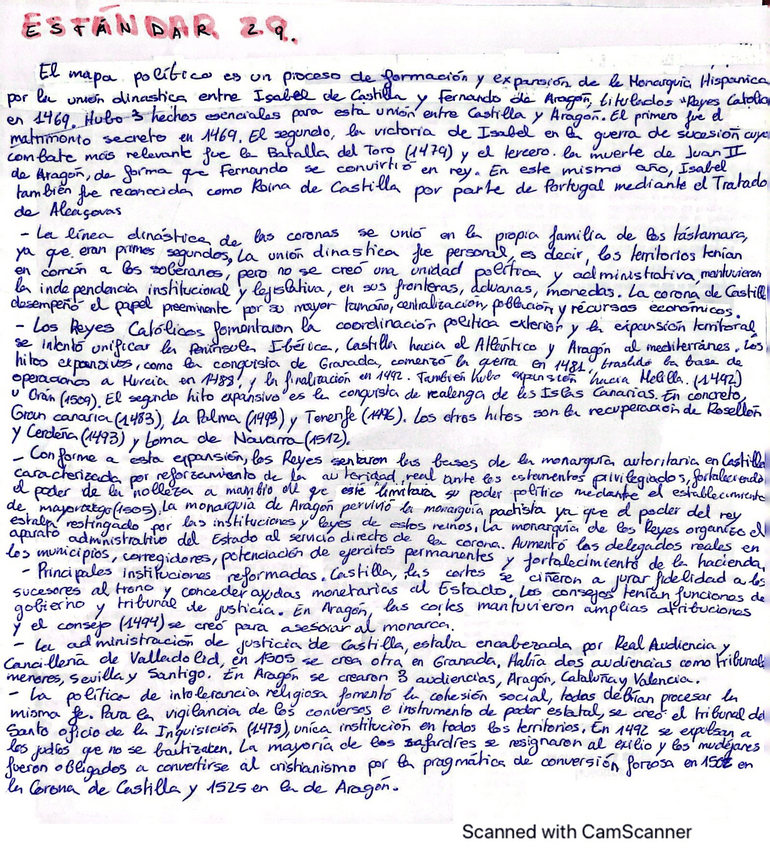 ESTÁNDAR 29.
El mapa político es un proceso de formación y expansión de la Monarquía Hispanica
por la unión dinastica entre Isabel de Castilla y Fernando de Aragón, titulados "Reyes Catolic
en 1469. Hubo 3 hechos esenciales para esta unión entre Castilla y Aragón. El primero fue el
matrimonio secreto en 1469. El segundo, la victoria de Isabel en la guerra de sucesión cuyo
combate más relevante fue la Batalla del Toro (1474) y el tercero. la muerte de Juan II
de Aragón, de forma que Fernando se convirtió en rey. En este mismo año, Isabel
también fue reconocida como Reina de Castilla por parte de Portugal mediante el Tratado
de Alcaçovas
- La línea dinástica de las coronas se unió en la propia familia de los tástamara,
ya que eran primos segundos. La unión dinastica fue personal, es decir, los territorios tenían
en común a los soberanos, pero no se creó una unidad política y administrativa, mantuvieron
la independencia institucional y legislativa, en sus fronteras, aduanas, monedas. La corona de Castill
desempeñó el papel preeminente por su mayor tamaño, centralización, población y recursos económicos.
- Los Reyes Católicos fomentaron la coordinación política exterior y la expansión territorial
se intentó unificar la Península Ibérica, Castilla hacia el Atlántico y Aragón al mediterráneo. Los
hitos expansivos, como la conquista de Granada, comenzó la guerra en 1481, trasladó la base de
operaciones a Murcia en 1488, y la finalización en 1492. También hubo expansión hacia Melilla. (1492)
u Orán (1509). El segundo hito expansivo es la conquista de realenga de las Islas Canarias. En concreto,
Gran canaria (1483), La Palma (1493) y Tenerife (1496). Los otros hitos son la recuperación de Rosellón
y Cerdeña (1493) y toma de Navarra (1512).
- Conforme a esta expansión, los Reyes sentaron las bases de la monarquía autoritaria en Castilla
caracterizada por reforzamiento de la autoridad real ante los estamentos privilegiados, fortaleciendo
el poder de la nobleza a cambio de que este limitara su poder político mediante el establecimiento
de mayorazgo (1505). La monarquía de Aragón pervivió la monarquía pactista ya que el poder del rey
estaba restingado por las instituciones y leyes de estos reinos. La monarquía de los Reyes organizó el
aparato administrativo del Estado al servicio directo de la corona. Aumentó los delegados reales en
los municipios, corregidores, potenciación de ejercitos permanentes y fortalecimiento de la hacienda.
- Principales instituciones reformadas. Castilla, las cortes se ciñeron a jurar fidelidad a los
sucesores al trono y conceder ayudas monetarias al Estado. Los consejos tenían funciones de
gobierno y tribunal de justicia. En Aragón, las cortes mantuvieron amplias atribuciones
y el consejo (1494) se creó para asesorar al monarca.
- La administración de justicia de Castilla, estaba encabezada por Real Audiencia y
Cancillería de Valladolid, en 1505 se crea otra en Granada. Había dos audiencias como tribunales
menores, Sevilla y Santigo. En Aragón se crearon 3 audiencias, Aragón, Cataluña y Valencia.
- La política de intolerancia religiosa fomentó la cohesión social, todas debían procesar la
misma fe. Para la vigilancia de los conversos e instrumento de poder estatal, se creó el tribunal del
Santo oficio de la Inquisición (1478), unica institución en todos los territorios. En 1492 se expulsan a
los judíos que no se bautizaten. La mayoría de los safardíes se resignaron al exilio y los mudéjares
fueron obligados a convertirse al cristianismo por la pragmática de conversión forzosa en 1502 en
la Corona de Castilla y 1525 en la de Aragón.
Scanned with CamScanner